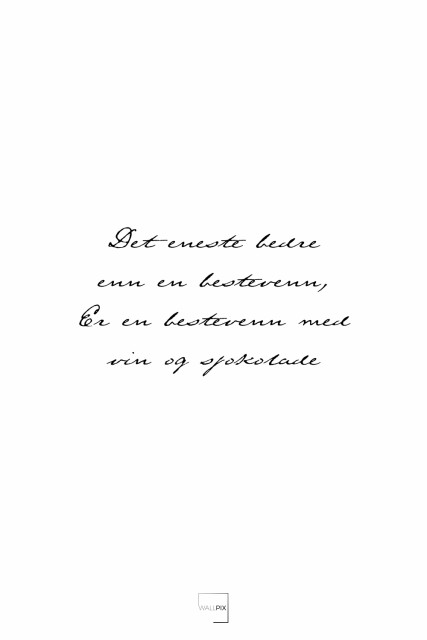 Det eneste bedre
enn en bestevenn,
Er en bestevenn med
vin og sjokolade
WALLPIX